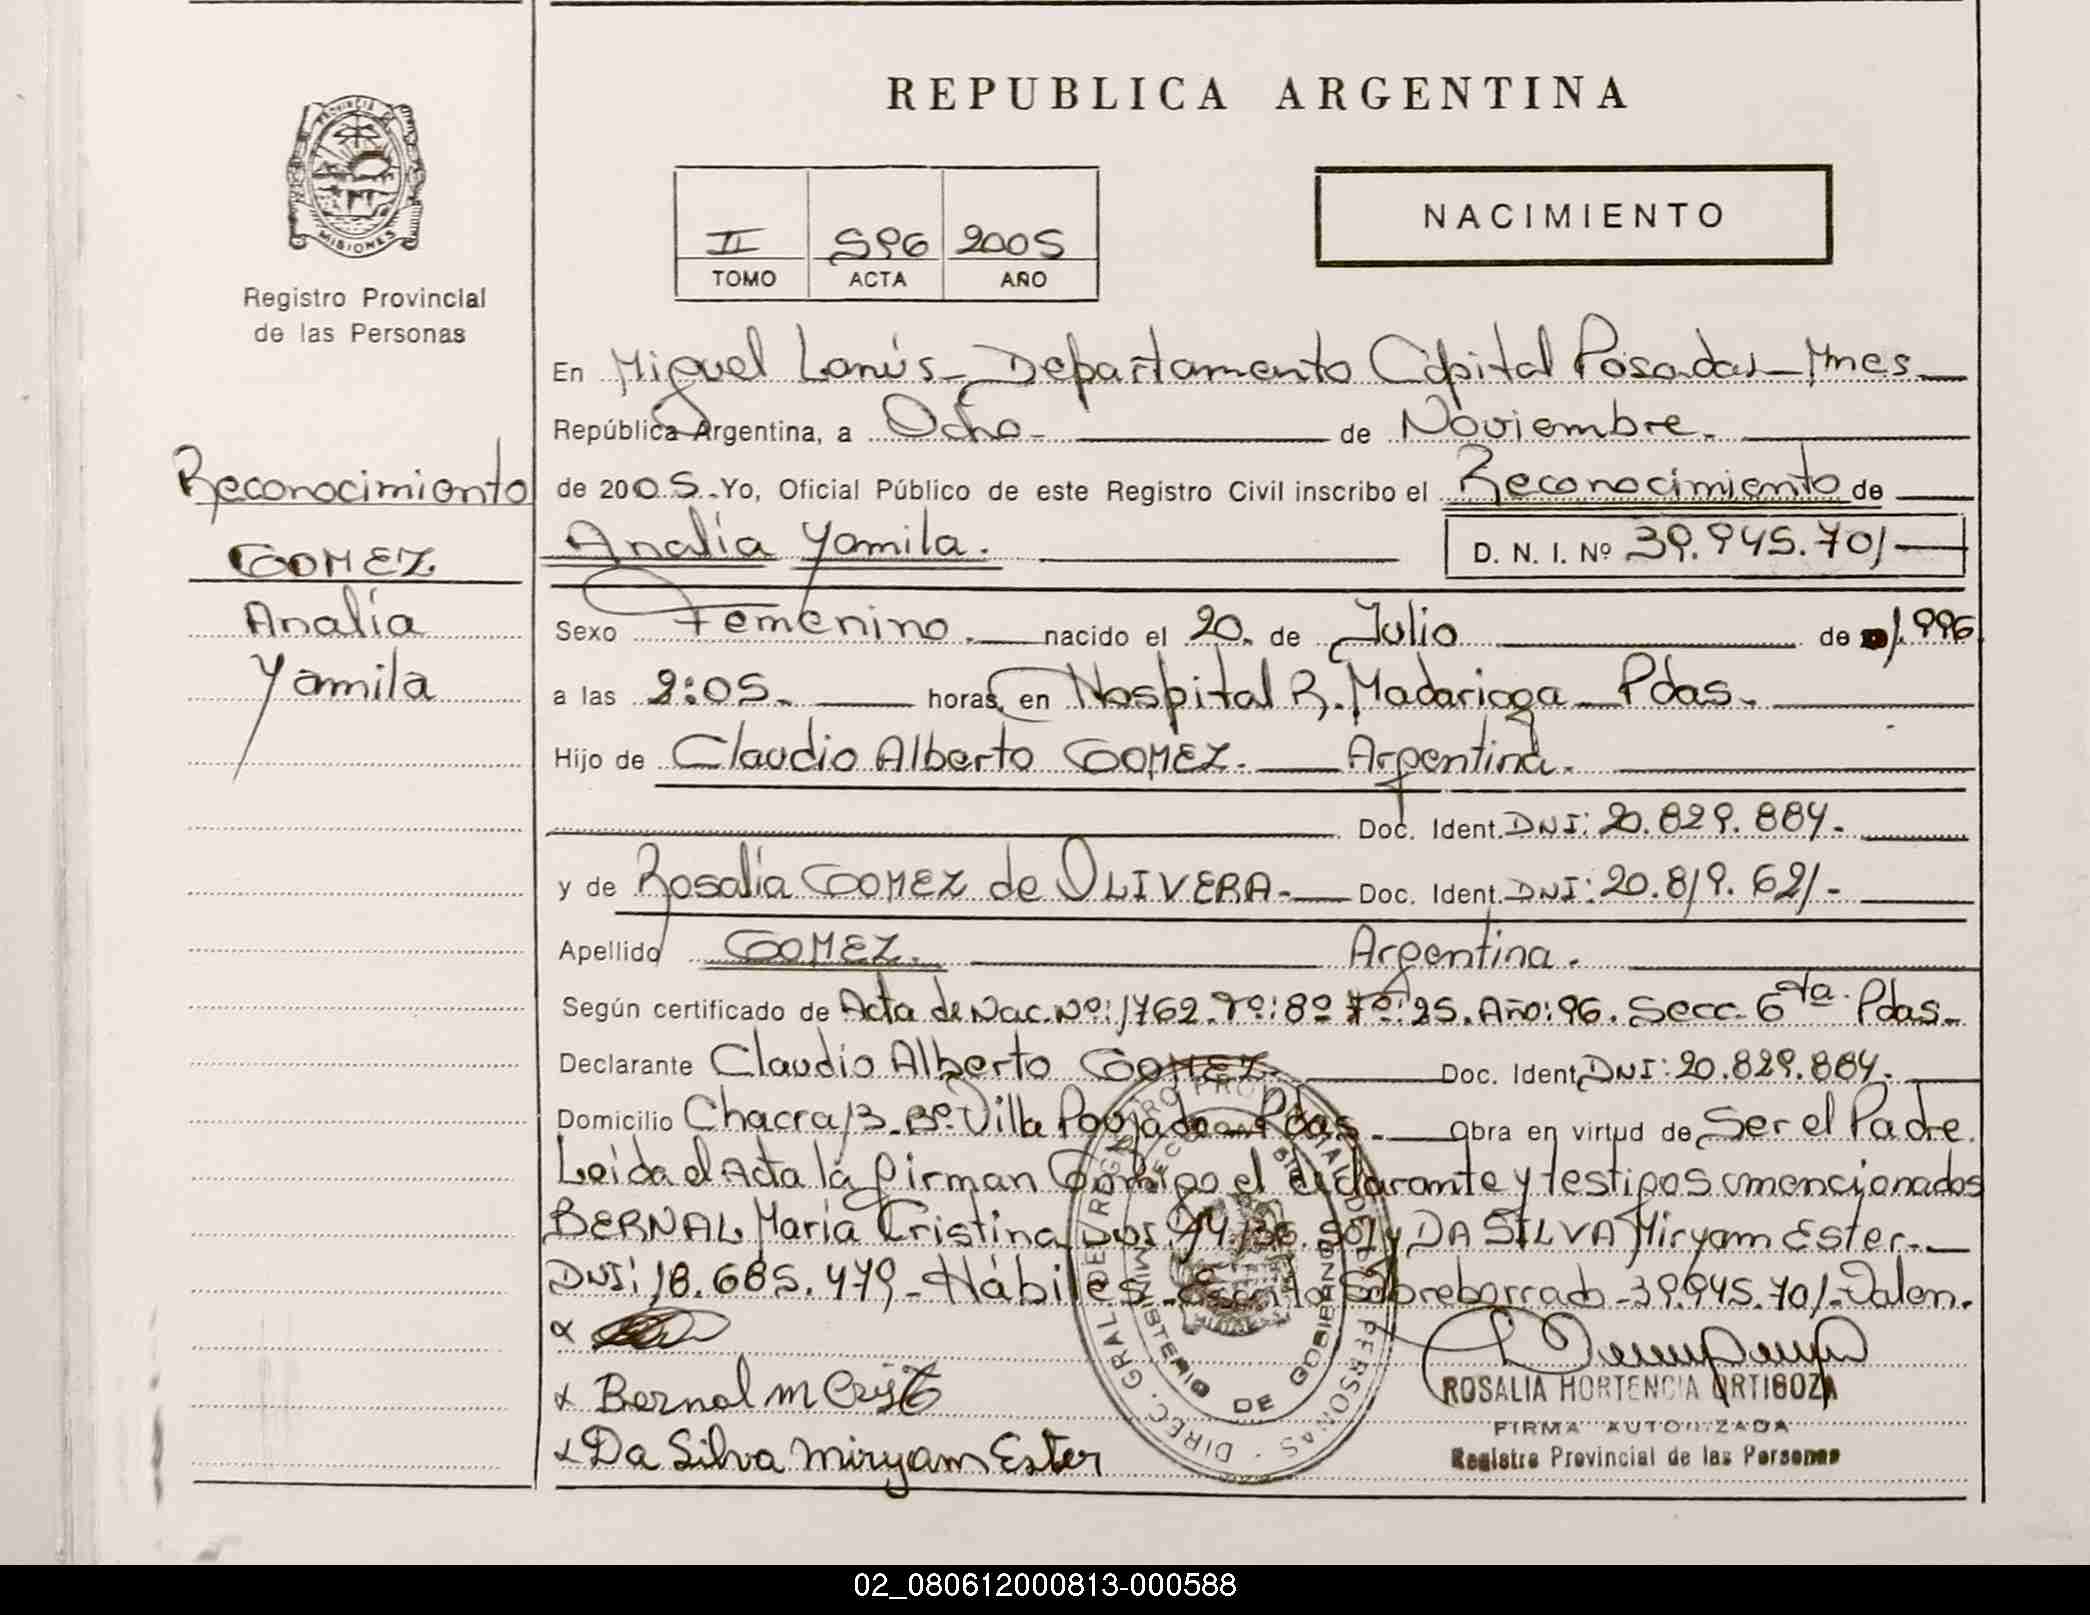 REPUBLICA ARGENTINA
PROVINCIA DE
MISIONES
Registro Provincial
de las Personas
NACIMIENTO
II 596 2005
TOMO ACTA AÑO
En Miguel Lanús - Departamento Cápital Posadas - Mnes
República Argentina, a Ocho - de Noviembre.
de 2005. Yo, Oficial Público de este Registro Civil inscribo el Reconocimiento de
Analía Yamila. D. N. I. Nº 39.945.701
Sexo Femenino. nacido el 20. de Julio de 1.996
a las 2:05. horas, en Hospital R. Madariaga - Pdas.
Hijo de Claudio Alberto GOMEZ. Argentina.
Doc. Ident. DNI: 20.829.884.
y de Rosalía GOMEZ de OLIVERA - Doc. Ident. DNI: 20.819.621-
Apellido GOMEZ. Argentina.
Según certificado de Acta de Nac. Nº: 1762. Tº: 8º Fº: 25. Año: 96. Secc. 6ta. Pdas.
Declarante Claudio Alberto GOMEZ. Doc. Ident. DNI: 20.829.884.
Domicilio Chacra 13. Bº. Villa Poujade - Pdas. Obra en virtud de Ser el Padre.
Leída el Acta la firman Conmigo el declarante y testigos mencionados
BERNAL María Cristina y DA SILVA Miryam Ester.
DNI: 18.685.479 - Hábiles - Escrito Sobreborrado - 39.945.701 - Valen.
Reconocimiento
GOMEZ
Analía
Yamila
x
x Bernal M Crist
x Da Silva Miryam Ester
DIREC. GRAL DEL REGISTRO PROVINCIAL DE LAS PERSONAS
MINISTERIO DE GOBIERNO
ROSALIA HORTENCIA ORTIGOZA
FIRMA AUTORIZADA
Registro Provincial de las Personas
02_080612000813-000588